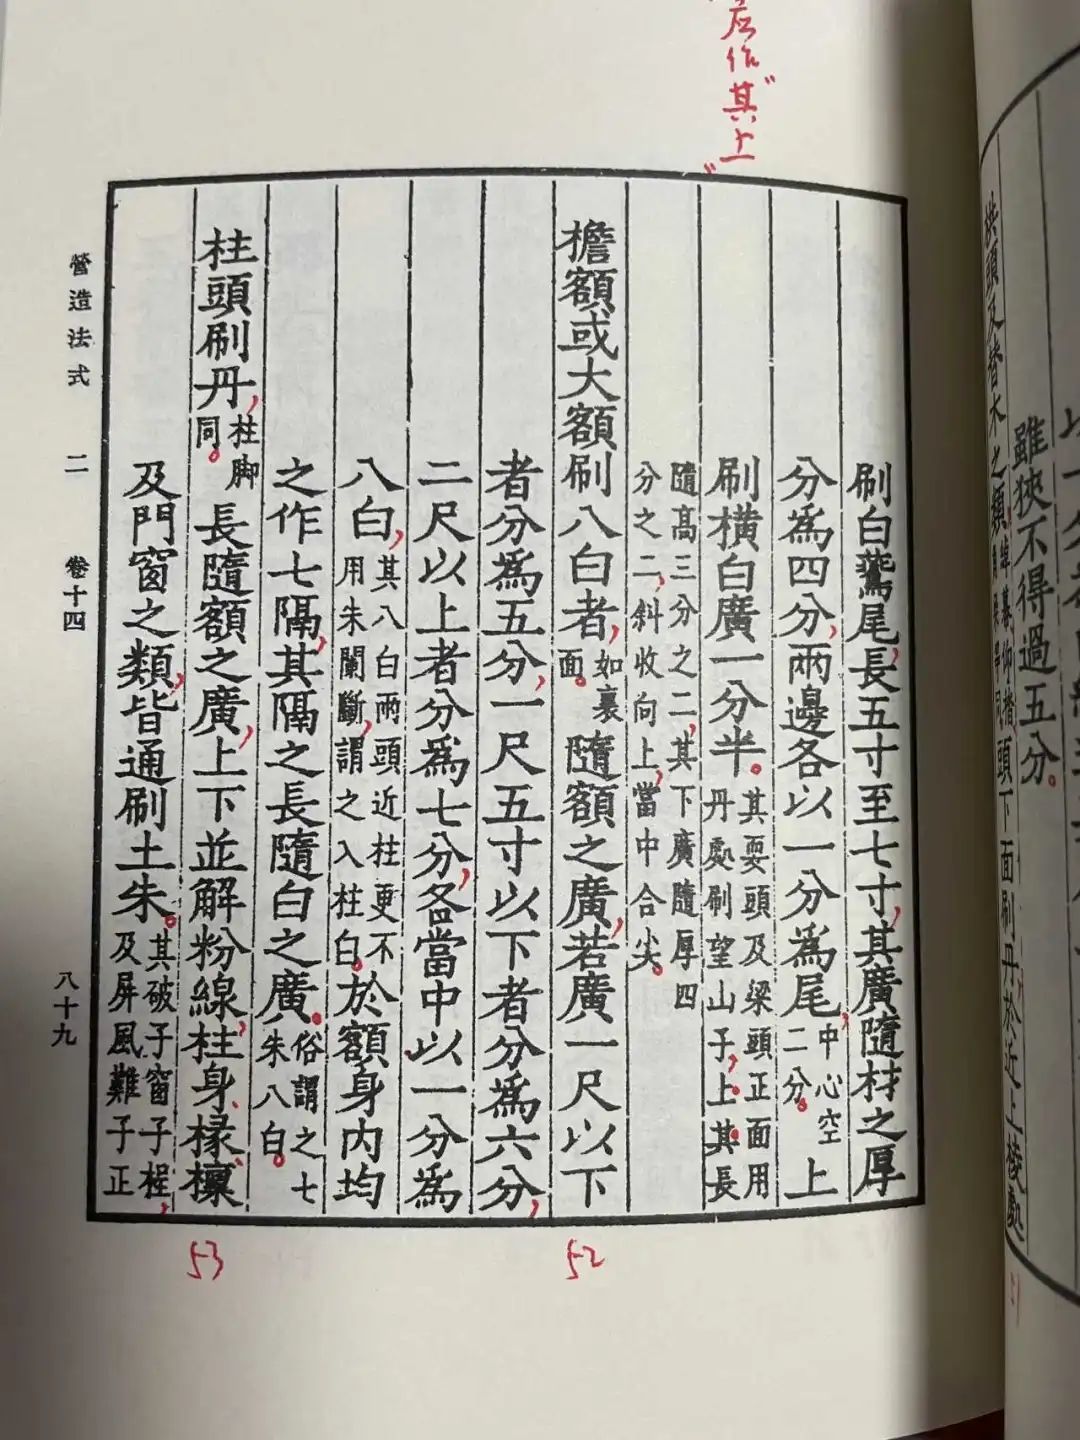 应作"其上"
刷白鷰尾，長五寸至七寸，其廣隨材之厚
分為四分，兩邊各以一分為尾，中心空二分。上
刷橫白廣一分半。其耍頭及梁頭正面用丹處刷望山子，上。其長
隨高三分之二，其下廣隨厚四分之二，斜收向上，當中合尖。
檐額或大額刷八白者，如裏面。隨額之廣，若廣一尺以下
者分為五分，一尺五寸以下者分為六分，
二尺以上者分為七分，各當中以一分為
八白，其八白兩頭近柱更不用朱闌斷，謂之入柱白。於額身内均
之作七隔，其隔之長隨白之廣。俗謂之七朱八白。
柱頭刷丹，柱脚同。長隨額之廣，上下並解粉線，柱身、椽、檁
及門窗之類，皆通刷土朱。其破子窗子桯，及屏風難子正
52
53
營造法式 二 卷十四 八十九
雖狹不得過五分。
栱頭及替木之類，頭下面刷丹，於近上棱處